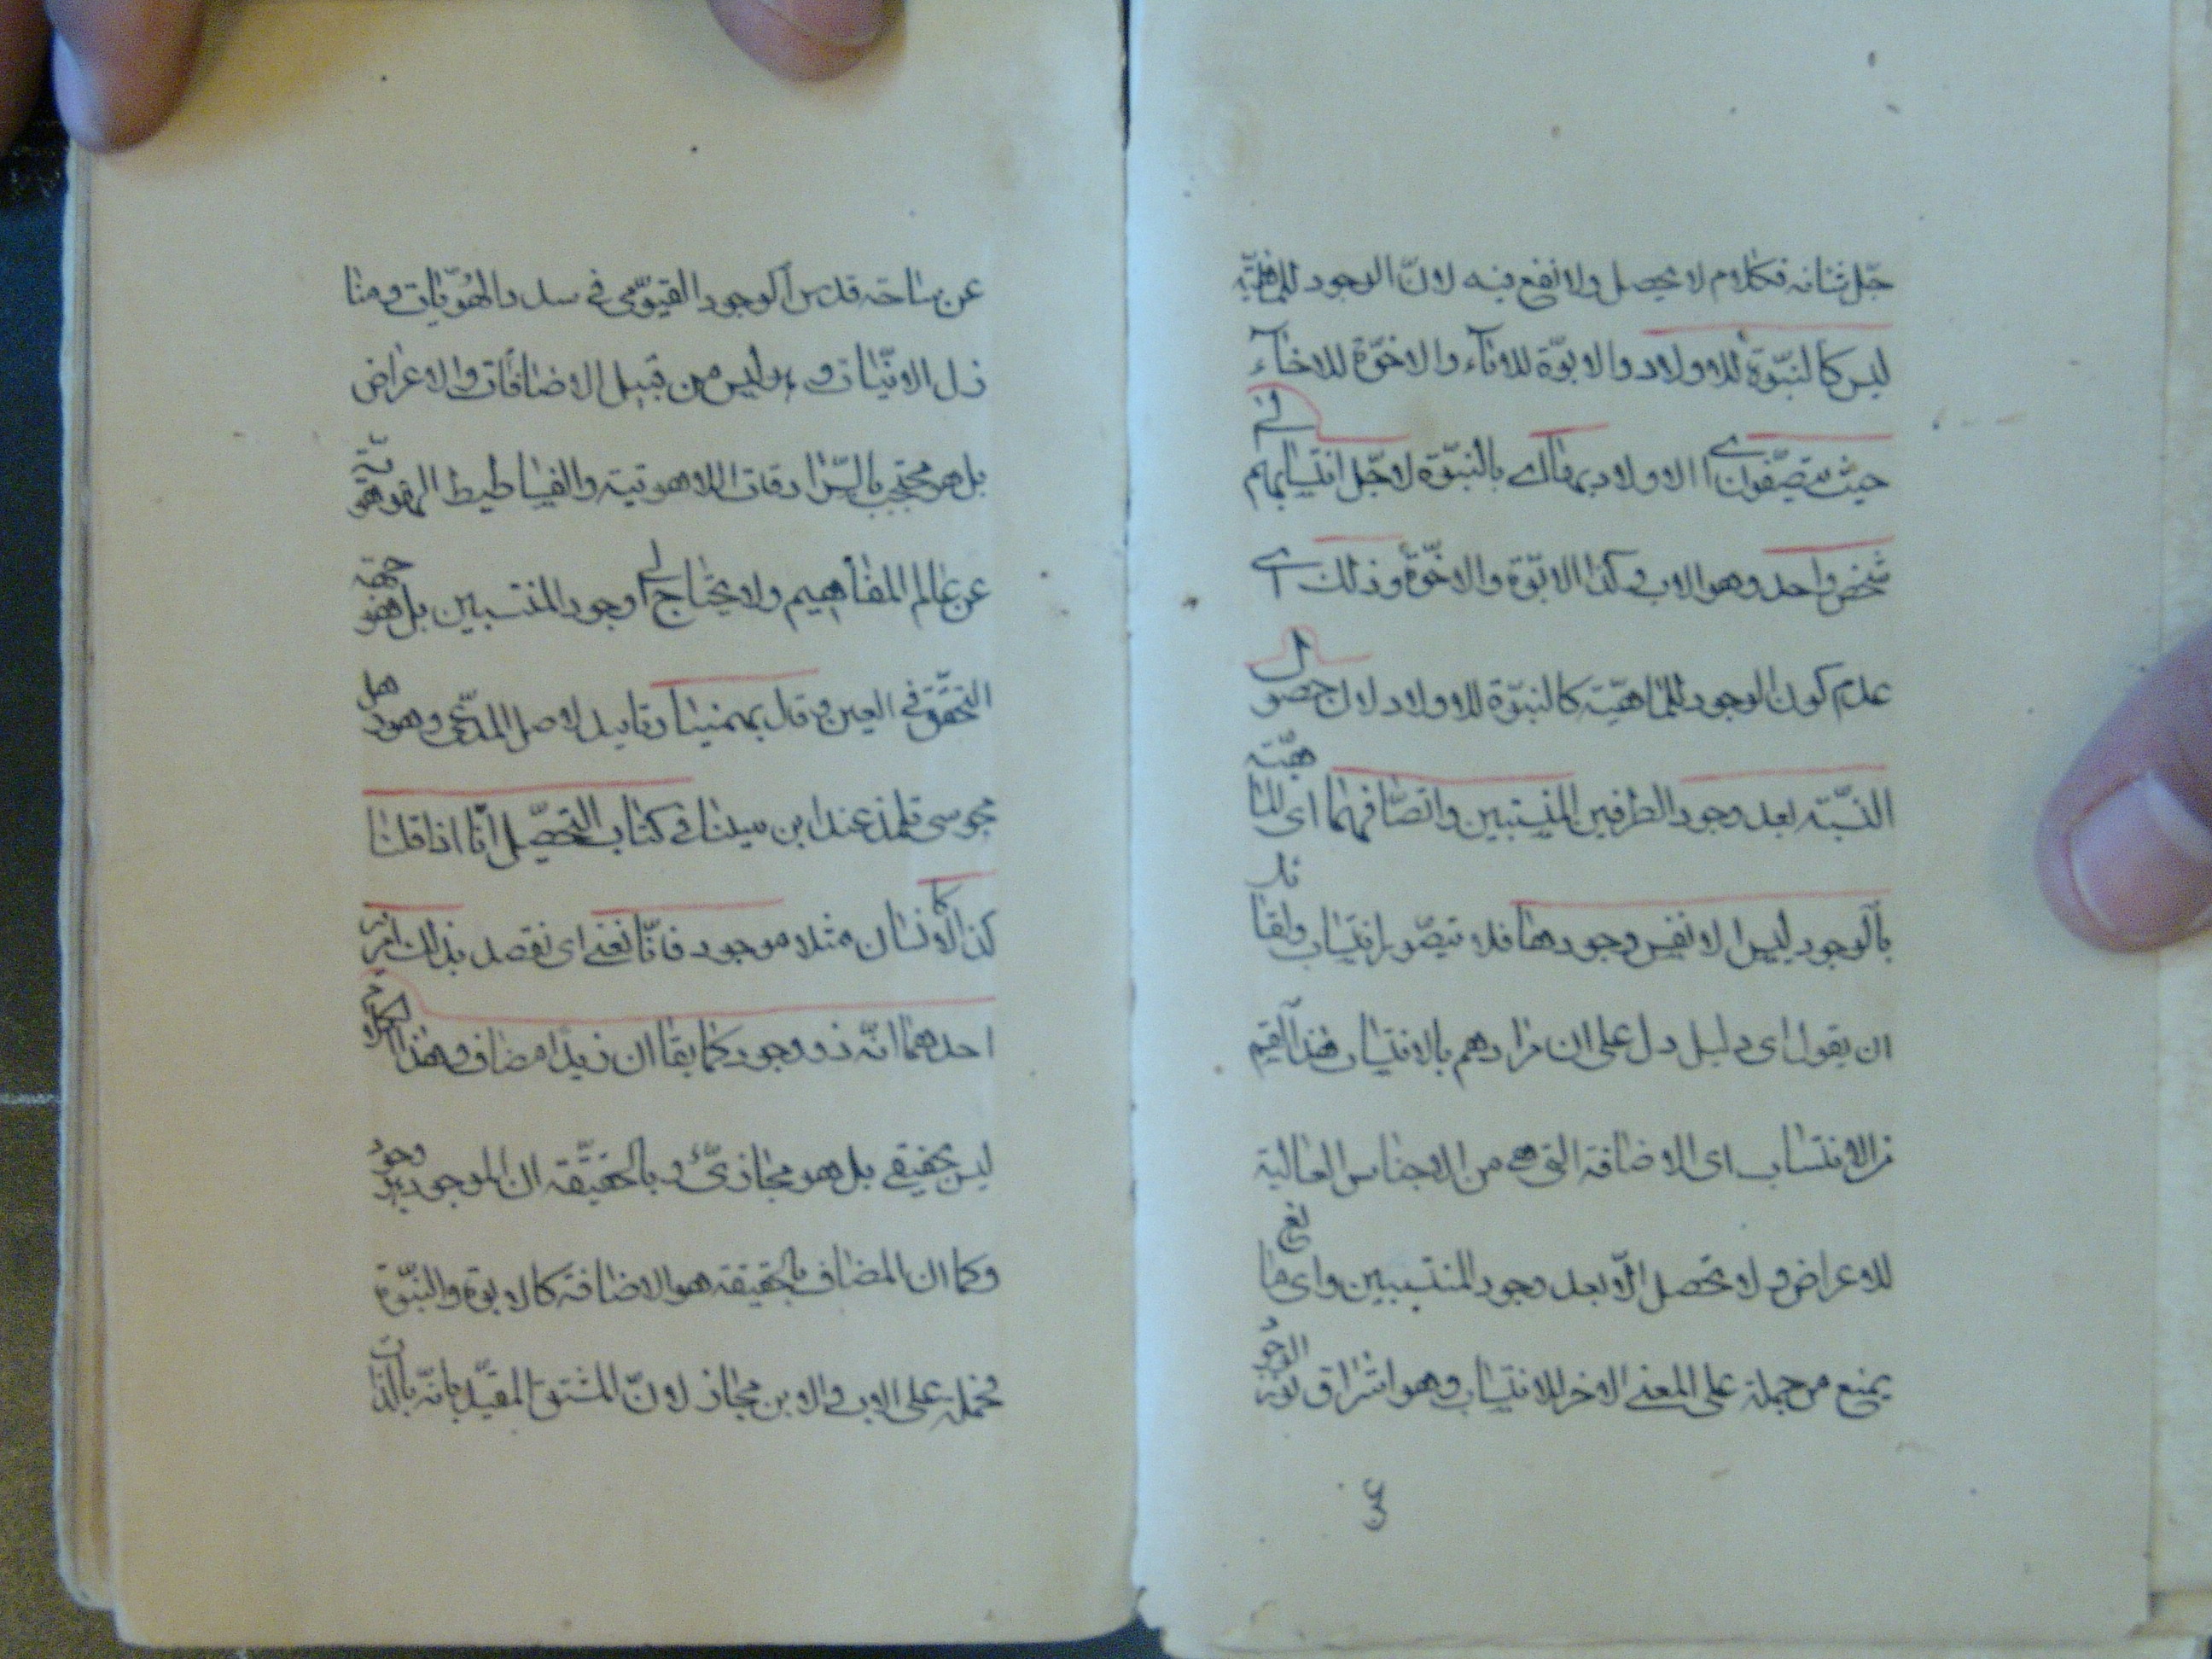 جلّ شانه فكلام لا يحصل ولا نفع فيه لانّ الوجود للماهيّة
ليس كالنبوّة للاولاد والابوّة للاباء والاخوّة للاخاء
حيث يتصّفون اى الاولاد بها اى بالنبوّة لاجل انتسابهم الى
شخص واحد وهو الاب و كذا الابوّة والاخوّة وذلك اى
عدم كون الوجود للماهيّة كالنبوّة للاولاد لان حصول
النسبة بعد وجود الطرفين المنتسبين واتصّافهما اى الماهيّة
بالوجود ليس الا نفس وجودها فلا يتصّور انتساب ولقائل
ان يقول اى دليل دل على ان مرادهم بالانتساب هذا القسم
من الانتساب اى الاضافة التى هى من الاجناس العالية
للاعراض و لا تحصل الّا بعد وجود المنتسبين واى مانع
يمنع من حمله على المعنى الاخر للانتساب وهو اشراق نور الوجود
عن ساحة قدس الوجود القيوّمى فى سدد الهُوّيات و منا
زل الانيّات و وليس من قبيل الاضافات والاعراض
بل هو محتجب بالسّرادقات اللاهوتية والفساطيط
عن عالم المفاهيم ولا يحتاج الى وجود المنتسبين بل هو حقيقة
التحقّق فى العين و قال بهمنيار تاييد لاصل المدّعى وهو
مجوسى تلمذ عند ابن سينا فى كتاب التحصيّل انّا اذا قلنا
كذا كالانسان مثلا موجود فانّا نعنى اى نقصد بذلك امرين
احدهما انّه ذو وجود كما يقا ان زيدًا مضاف و هذا الكلام
ليس بحقيقى بل هو مجازىّ و بالحقيقّة ان الموجود هو الوجود
وكما ان المضاف بالحقيقة هو الاضافة كالابوة والنبوّة
فحمله على الاب و الابن مجاز لانّ المشتق المقيّد بانّه بالذات
٤